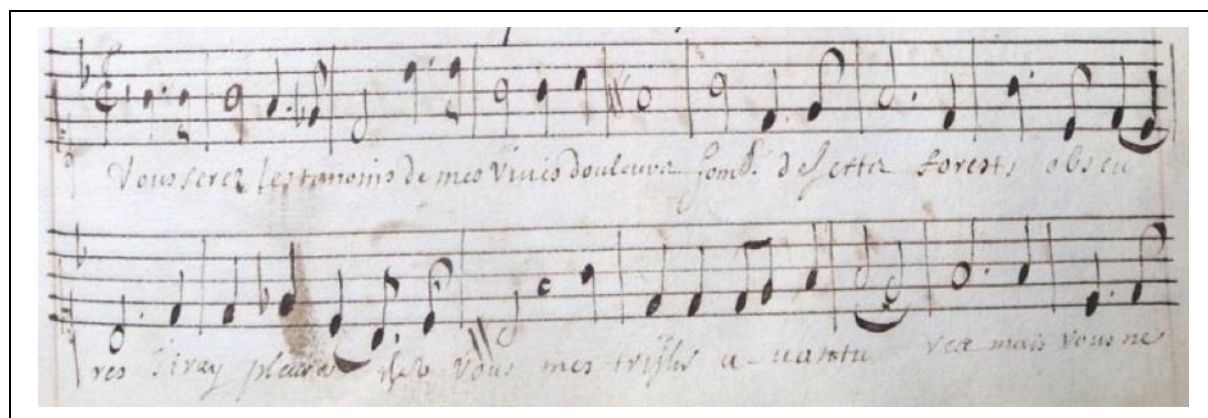 Vous serez les temoins de mes Vives douleurs somb. desertts forests obscu
res Jiray pleurer chez Vous mes tristes a-uantu res mais vous ne